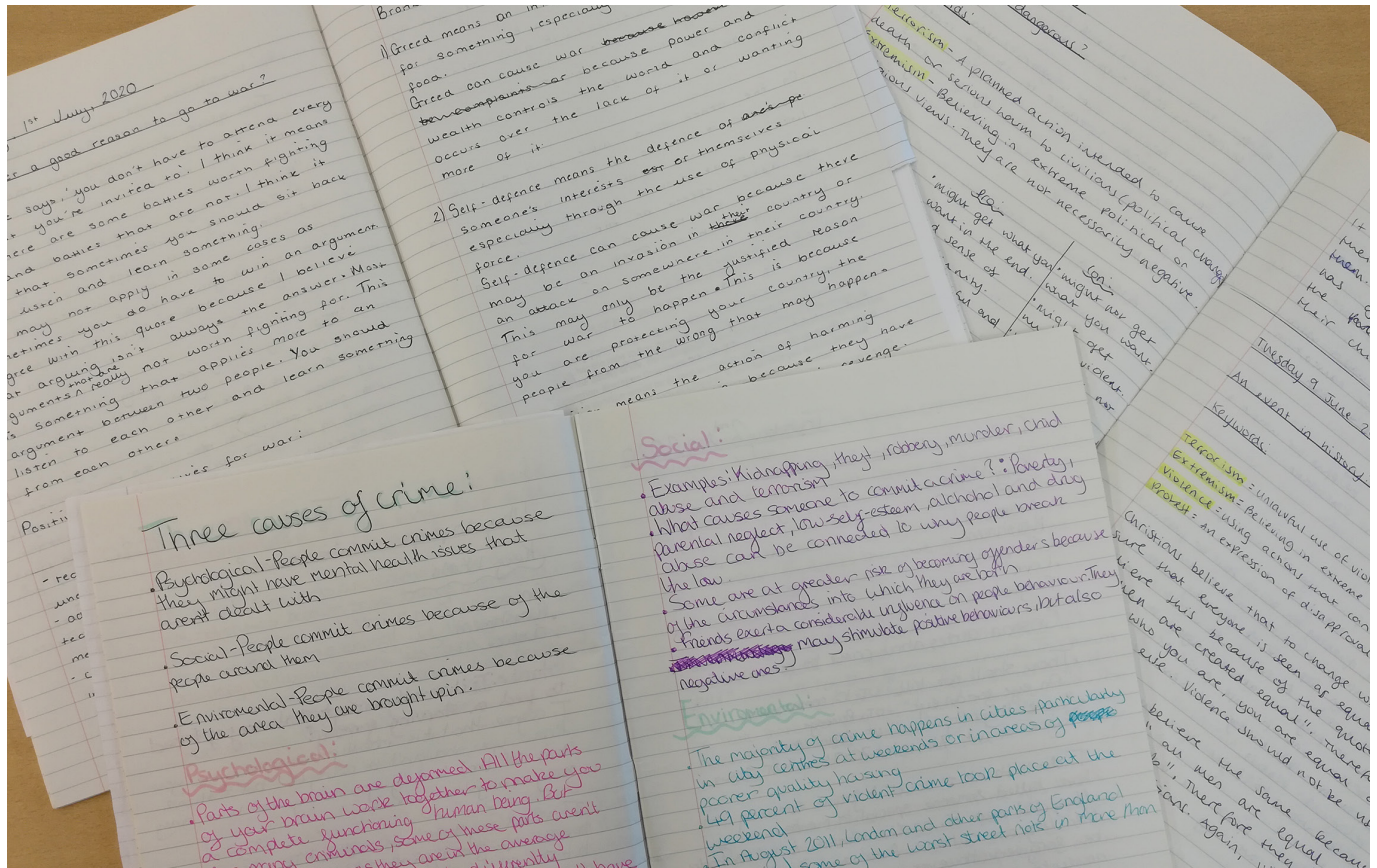 1st July, 2020
a good reason to go to war?
says, 'you don't have to attend every
you're invited to'. I think it means
there are some battles worth fighting
and battles that are not. I think it
that sometimes you should sit back
listen and learn something.
may not apply in some cases as
sometimes you do have to win an argument.
agree with this quote because I believe
arguing isn't always the answer. Most
arguments that are really not worth fighting for. This
is something that applies more to an
argument between two people. You should
listen to each other and learn something
from each other.
for war:
1) Greed means an
for something, especially
food.
Greed can cause war because
or because power and
wealth controls the world and conflict
occurs over the lack of it or wanting
more of it
2) Self-defence means the defence of
someone's interests or themselves
especially through the use of physical
force.
Self-defence can cause war because there
may be an invasion in their country or
an attack on somewhere in their country.
This may only be the justified reason
for war to happen. This is because
you are protecting your country, the
people from the wrong that may happen.
means the action of harming
because they have
revenge.
dangerous?
Terrorism - A planned action intended to cause
death or serious harm to civilians (political change
Extremism - Believing in extreme political or
views. They are not necessarily negative.
might get what you
want in the end.
sense of
and
might not get
what you want.
get
not
Tuesday 9 June
An event in history
Keywords:
Terrorism = unlawful use of
Extremism = Believing in extreme
Violence = using actions that
Protest = An expression of disapproval
Christians believe that to change
sure that everyone is seen as equal
this because of the quote
are created equal". Therefore
who you are, you are equal
else. Violence should not be
believe the same because
all men are equal
Therefore
Again,
Three causes of crime:
• Psychological-People commit crimes because
they might have mental health issues that
arent dealt with
• Social-People commit crimes because of the
people around them
• Enviromental-People commit crimes because
of the area they are brought up in.
Psychological:
• Parts of the brain are deformed. All the parts
of your brain work together to make you
a complete functioning human being. But
many criminals, some of these parts aren't
they are in the average
Social:
• Examples: Kidnapping, theft, robbery, murder, child
abuse and terrorism
• What causes someone to commit a crime?: Poverty,
parental neglect, low-self-esteem, alchohol and drug
abuse can be connected to why people break
the law.
• Some are at greater risk of becoming offenders because
of the circumstances into which they are born
• Friends exert a considerable influence on people behaviour. They
may stimulate positive behaviours, but also
negative ones
Enviromental:
• The majority of crime happens in cities, particularly
in city centres at weekends or in areas of
poorer quality housing
• 49 percent of violent crime took place at the
weekend
• In August 2011, London and other parts of England
some of the worst street riots in more than